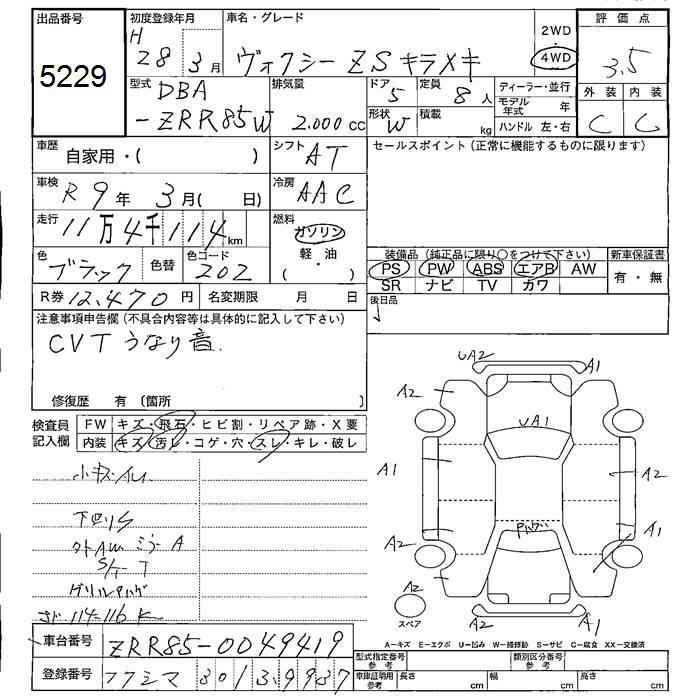 出品番号
5229
初度登録年月
H
28 3 月
車名・グレード
ヴォクシー ZS キラメキ
2WD
4WD
評価点
3.5
外装 内装
C C
型式
DBA
-ZRR85W
排気量
2.000 cc
ドア
5
定員
8 人
形状
W
積載
kg
ディーラー・並行
モデル年式 年
ハンドル 左・右
車歴
自家用・( )
シフト
AT
セールスポイント (正常に機能するものに限ります)
車検
R 9 年 3 月( 日)
冷房
AAC
走行
11万4千114 km
燃料
ガソリン
軽・油
・( )
色
ブラック
色替
色コード
202
装備品 (純正品に限り○をつけて下さい)
PS PW ABS エアB AW
SR ナビ TV カワ
新車保証書
有・無
R券 12,470 円
名変期限 月 日
後日品
注意事項申告欄 (不具合内容等は具体的に記入して下さい)
CVT うなり音.
修復歴 有 (箇所 )
検査員記入欄
FW キズ・飛石・ヒビ割・リペア跡・X要
内装 キズ・汚レ・コゲ・穴・スレ・キレ・破レ
小キズ
下回りS
ミラー A
UA2
A1
A2
UA1
A1
A2
A2
A1
A2
スペア
A2
A1
A=キズ E=エクボ U=凹み W=補修跡 S=サビ C=腐食 XX=交換済
車台番号
ZRR85-0049419
登録番号
フクシマ 301 3 9937
型式指定番号 参考
類別区分番号 参考
車庫証明用 参考
長さ cm
幅 cm
高さ cm